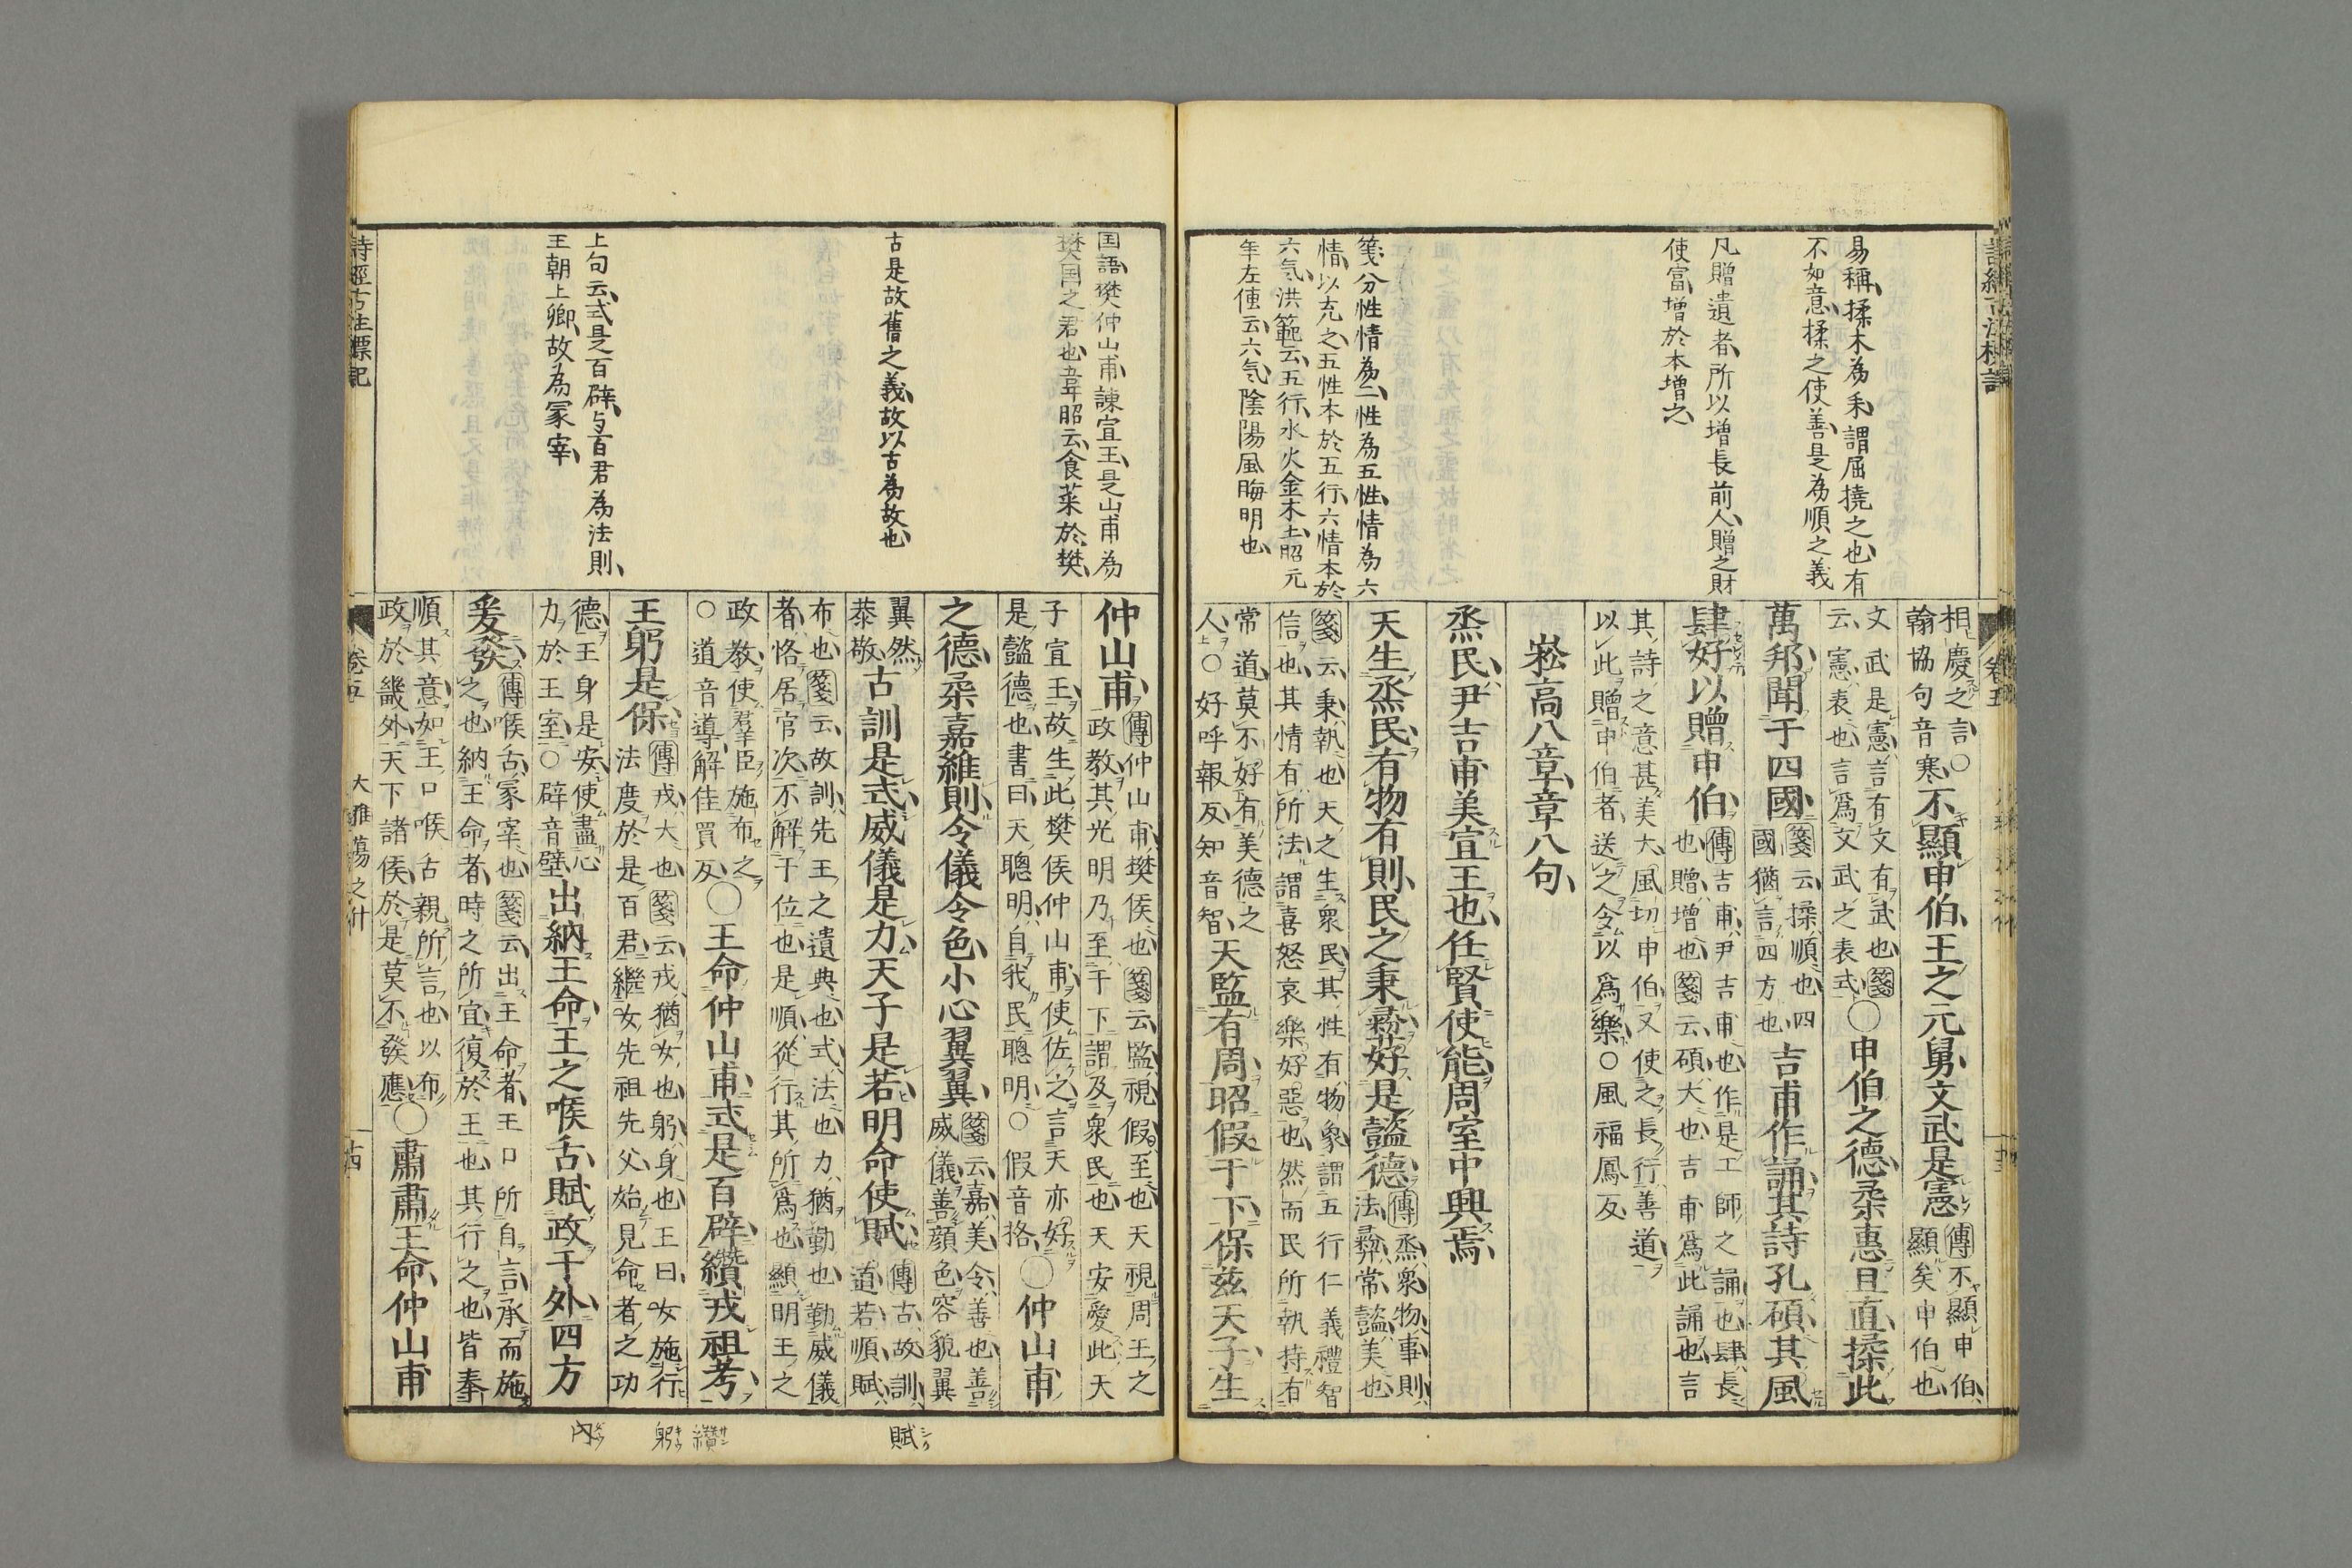 易稱揉木為耒謂屈撓之也有
不如意揉之使善是為順之義
凡贈遺者所以増長前人贈之財
使富増於本増之
箋分性情為二性為五性情為六
情以充之五性本於五行六情本於
六気洪範云五行水火金木土昭元
年左傳云六気陰陽風晦明也
相慶之言○
翰協句音寒不顯申伯王之元舅文武是憲傳不顯申伯
顯矣申伯也
文武是憲言有文有武也箋
云憲表也言爲文武之表式○申伯之德柔惠且直揉此
萬邦聞于四國箋云揉順也四
國猶言四方也吉甫作誦其詩孔碩其風
肆好以贈申伯傳吉甫尹吉甫也作是工師之誦也肆長
也贈増也箋云碩大也吉甫爲此誦也言
其詩之意甚美大風切申伯又使之長行善道
以此贈申伯者送之令以爲樂○風福鳳反
崧高八章章八句
烝民尹吉甫美宣王也任賢使能周室中興焉
天生烝民有物有則民之秉彝好是懿德傳烝衆物事則
法彝常懿美也
箋云秉執也天之生衆民其性有物象謂五行仁義禮智
信也其情有所法謂喜怒哀樂好惡也然而民所執持有
常道莫不好有美德之
人○好呼報反知音智天監有周昭假于下保茲天子生
詩經古注標記
卷五
国語樊仲山甫諫宣王是山甫為
樊国之君也韋昭云食菜於樊
古是故舊之義故以古為故也
上句云式是百辟与百君為法則
王朝上卿故為冢宰
仲山甫傳仲山甫樊侯也箋云監視假至也天視周王之
政教其光明乃至于下謂及衆民也天安愛此天
子宣王故生此樊侯仲山甫使佐之言天亦好
是懿德也書曰天聰明自我民聰明○假音格○仲山甫
之德柔嘉維則令儀令色小心翼翼箋云嘉美令善也善
威儀善顔色容貌翼
翼然
恭敬古訓是式威儀是力天子是若明命使賦傳古故訓
道若順賦
布也箋云故訓先王之遺典也式法也力猶勤也勤威儀
者恪居官次不解于位也是順從行其所爲也顯明王之
政教使羣臣施布之
○道音導解佳買反○王命仲山甫式是百辟纘戎祖考
王躬是保傳戎大也箋云戎猶女也躬身也王曰女施行
法度於是百君繼女先祖先父始見命者之功
德王身是安使盡心
力於王室○辟音壁出納王命王之喉舌賦政于外四方
爰發傳喉舌冢宰也箋云出王命者王口所自言承而施
之也納王命者時之所宜復於王也其行之也皆奉
順其意如王口喉舌親所言也以布
政於畿外天下諸侯於是莫不發應○肅肅王命仲山甫
賦シク
纘サン
躬キウ
内
詩經古注標記
卷五
大雅蕩之什
十四